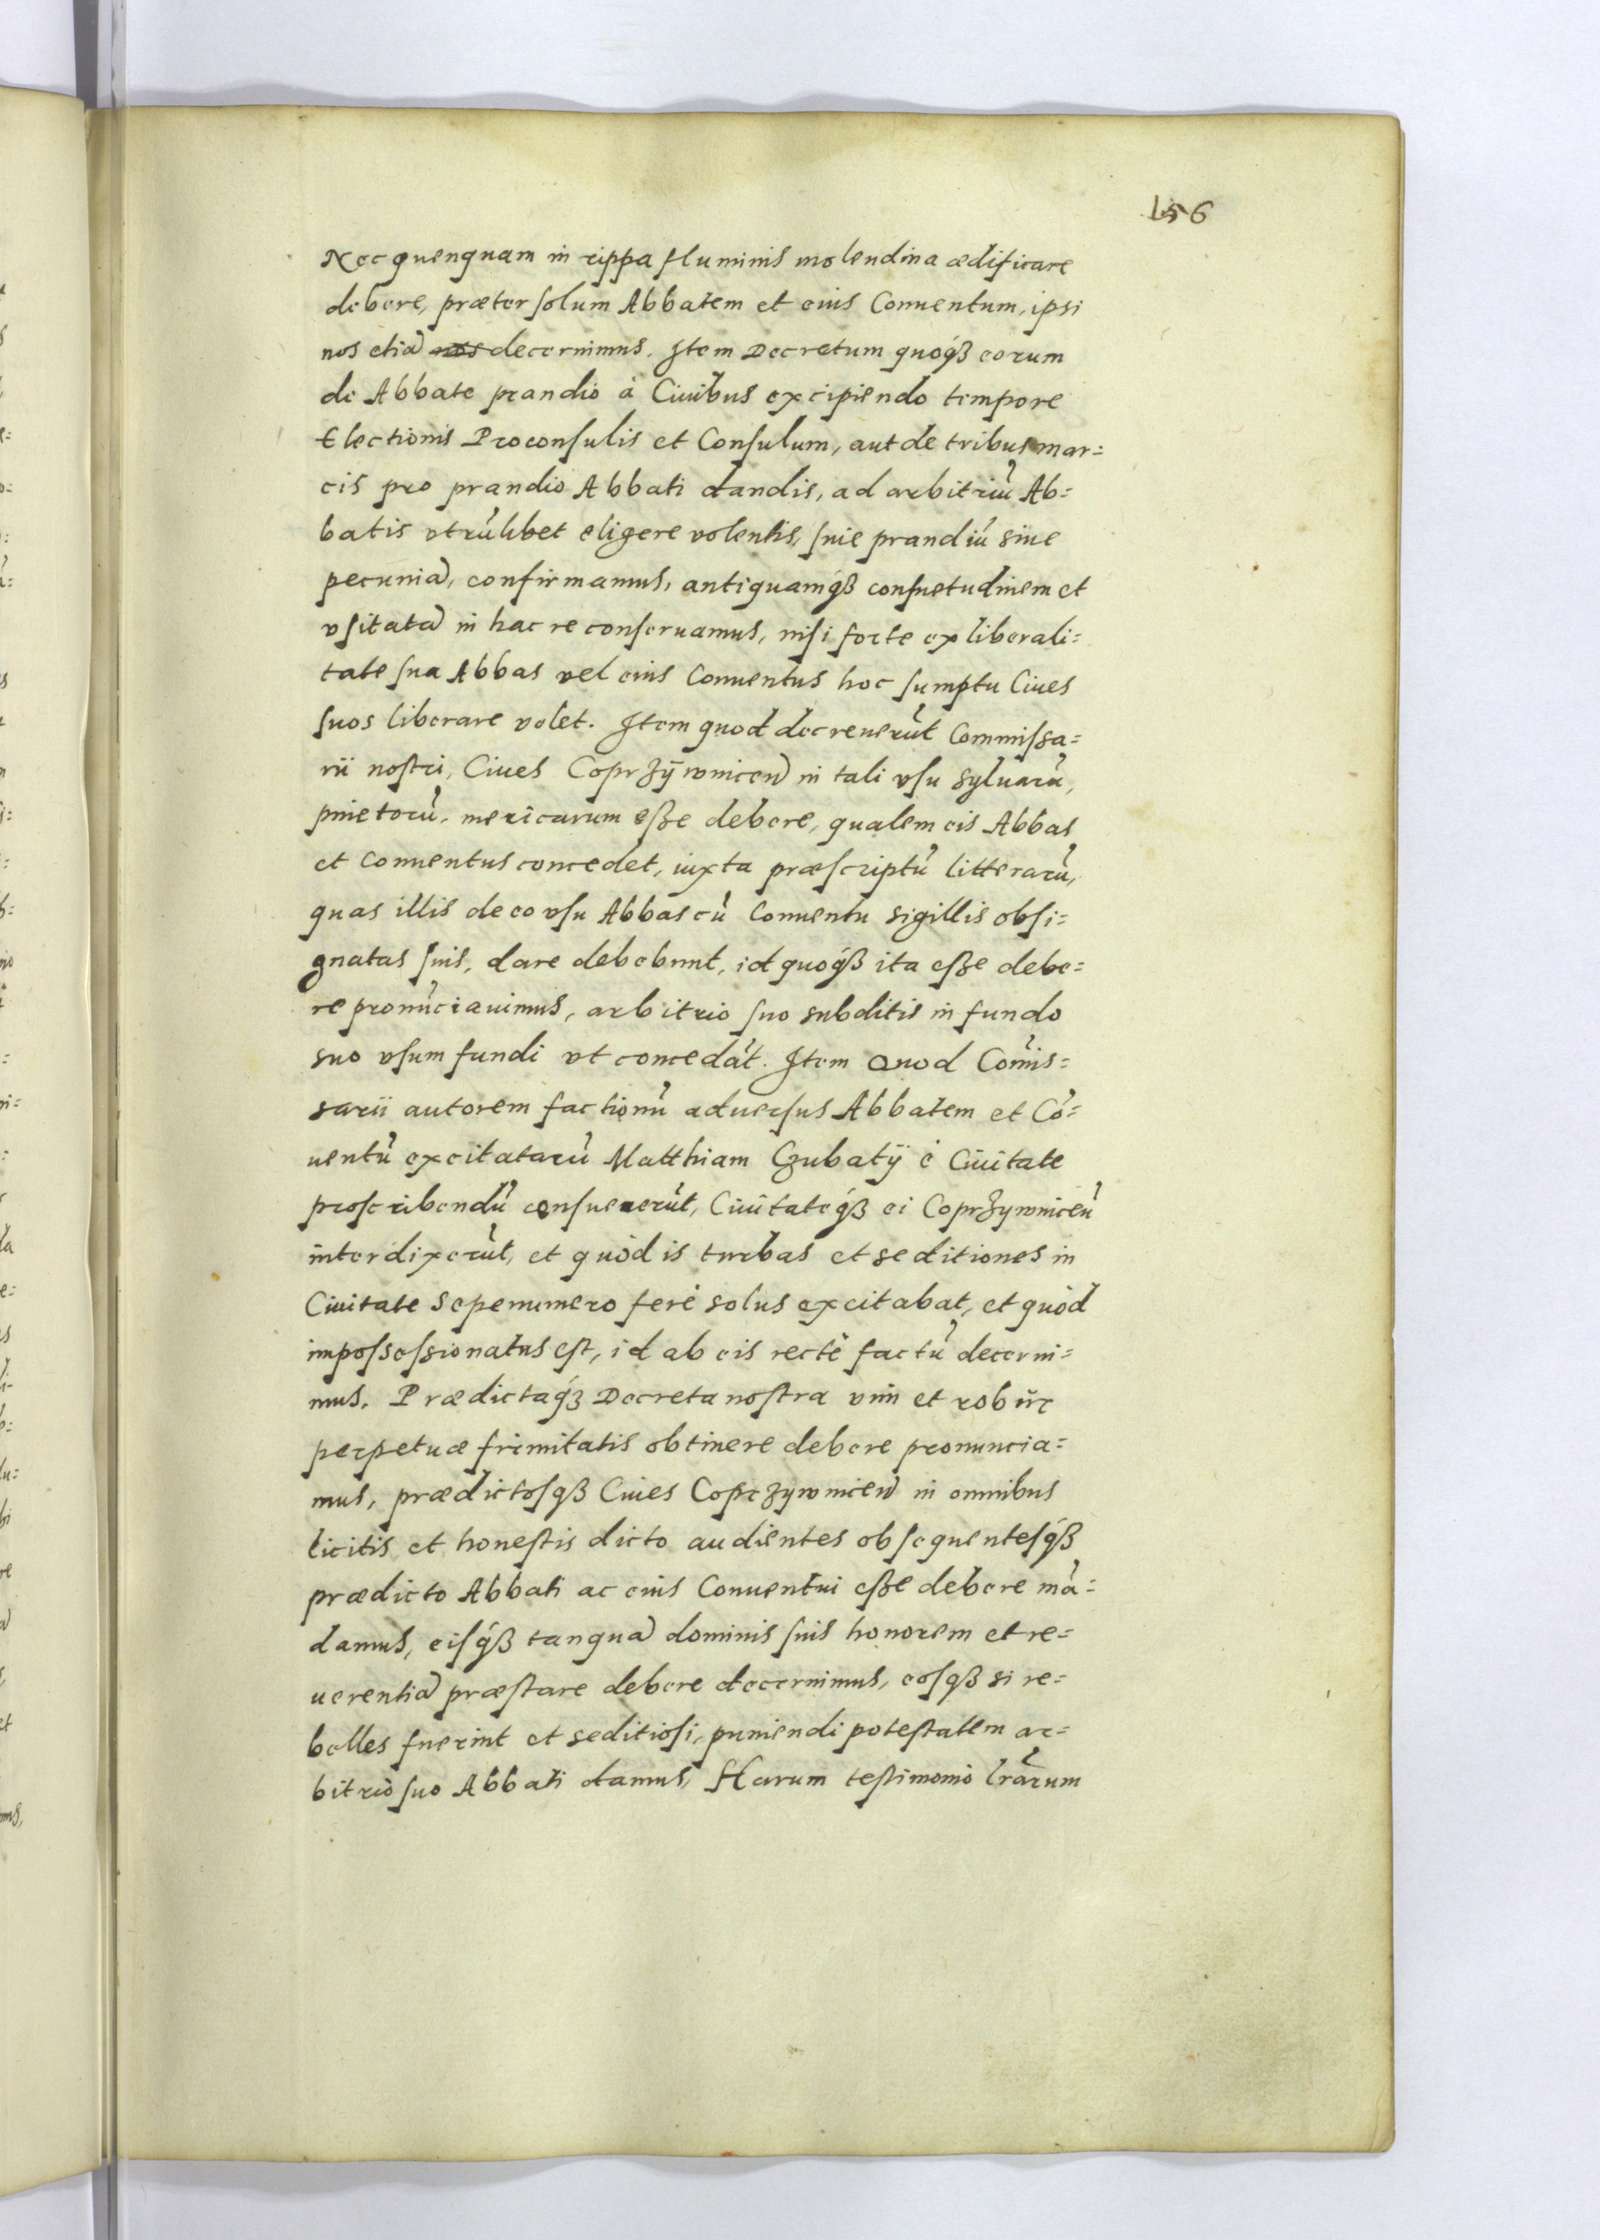 156
Nec quenquam in rippa fluminis molendina ædificare
debere, præter solum Abbatem et eius Conuentum, ipsi
nos etiã nos decernimus. Item Decretum quoqꝫ eorum
de Abbate prandio à Ciuibus excipiendo tempore
Electionis Proconsulis et Consulum, aut de tribus mar=
cis pro prandio Abbati dandis, ad arbitriũ Ab=
batis vtrũlibet eligere volentis, siue prandiũ siue
pecuniã, confirmamus, antiquamqꝫ consuetudinem et
vsitatã in hac re conseruamus, nisi forte ex liberali=
tate sua Abbas vel eius Conuentus hoc sumptu Ciues
suos liberare volet. Item quod decreuerũt Commissa=
rii nostri, Ciues Coprzÿwniceñ in tali vsu syluarũ,
pinetorũ, mericarum esse debere, qualem eis Abbas
et Conuentus concedet, iuxta præscriptũ litterarũ,
quas illis de eo vsu Abbas cũ Conuentu sigillis obsi=
gnatas suis, dare debebunt, id quoqꝫ ita esse debe=
re pronũciauimus, arbitrio suo subditis in fundo
suo vsum fundi vt concedãt. Item Quod Com̃is=
sarii autorem factionũ aduersus Abbatem et Cõ=
uentũ excitatarũ Matthiam Czubatÿ è Ciuitate
proscribendũ censuerũt, Ciuitateqꝫ ei Coprzywniceñ
interdixerũt, et quòd is turbas et seditiones in
Ciuitate sepenumero ferè solus excitabat, et quòd
impossessionatus est, id ab eis rectè factũ decerni=
mus. Prædictaqꝫ Decreta nostra vim et robur
perpetuæ firmitatis obtinere debere pronuncia=
mus, prædictosqꝫ Ciues Coprzywniceñ in omnibus
licitis et honestis dicto audientes obsequentesqꝫ
prædicto Abbati ac eius Conuentui esse debere mã=
damus, eisqꝫ tanquã dominis suis honorem et re=
uerentiã præstare debere decernimus, eosqꝫ si re=
belles fuerint et seditiosi, puniendi potestatem ar=
bitrio suo Abbati damus, Harum testimonio lr̃arum